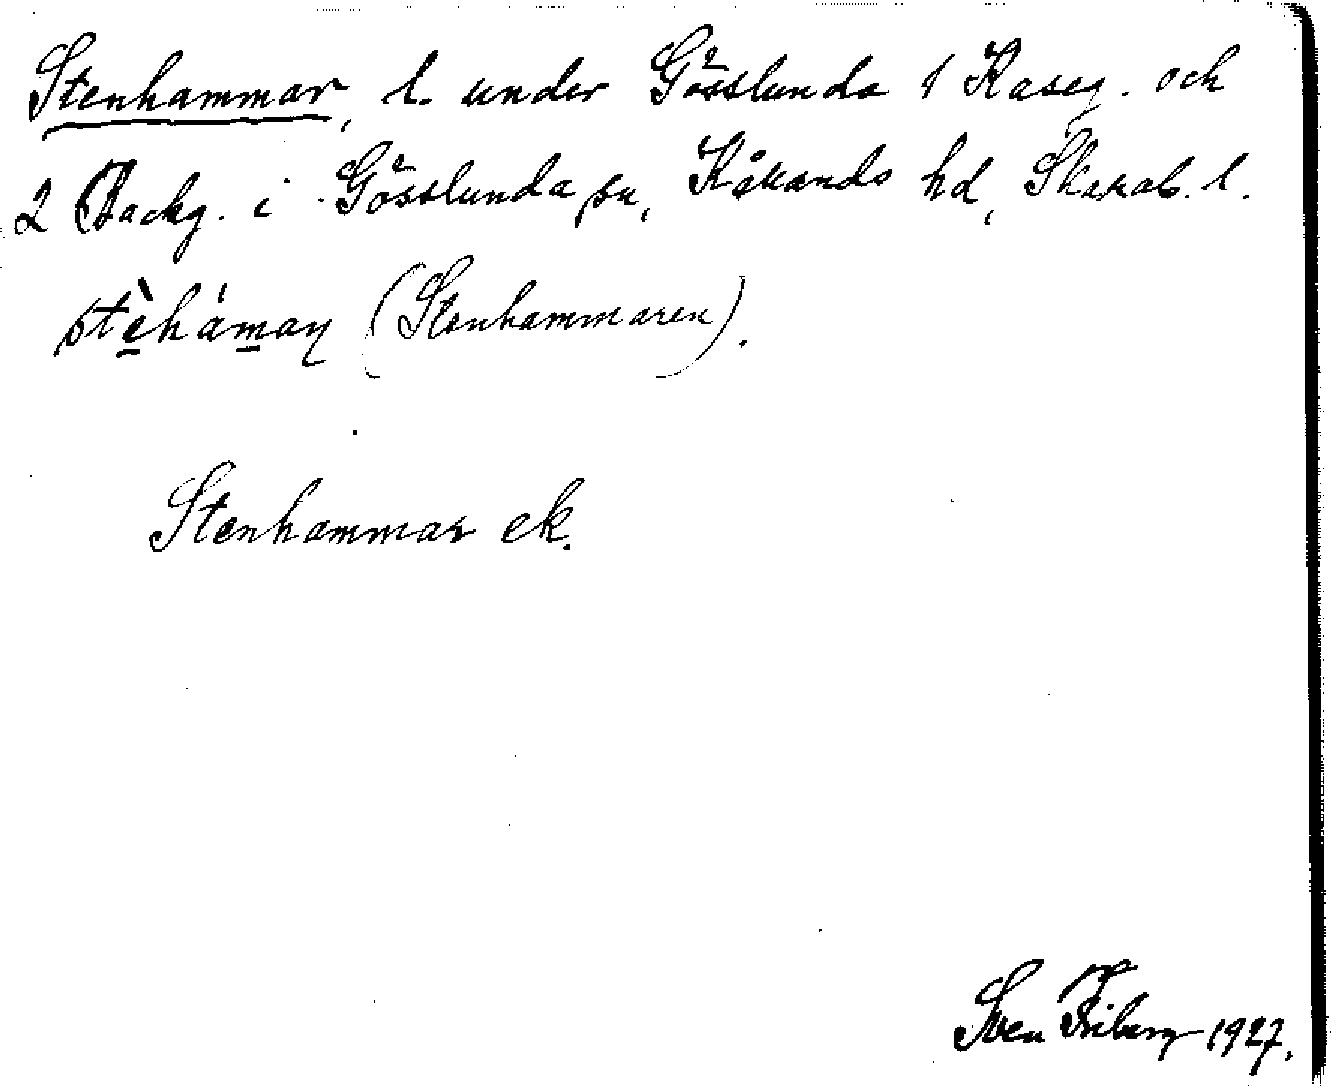 Stenhammar, l. under Gösslunda 1 Kaseg. och
2 Backg. i Gösslunda sn, Kålands hd, Skarab. l.
stèhámaɳ (Stenhammaren).
Stenhammar ek.
Sven Friberg 1927.